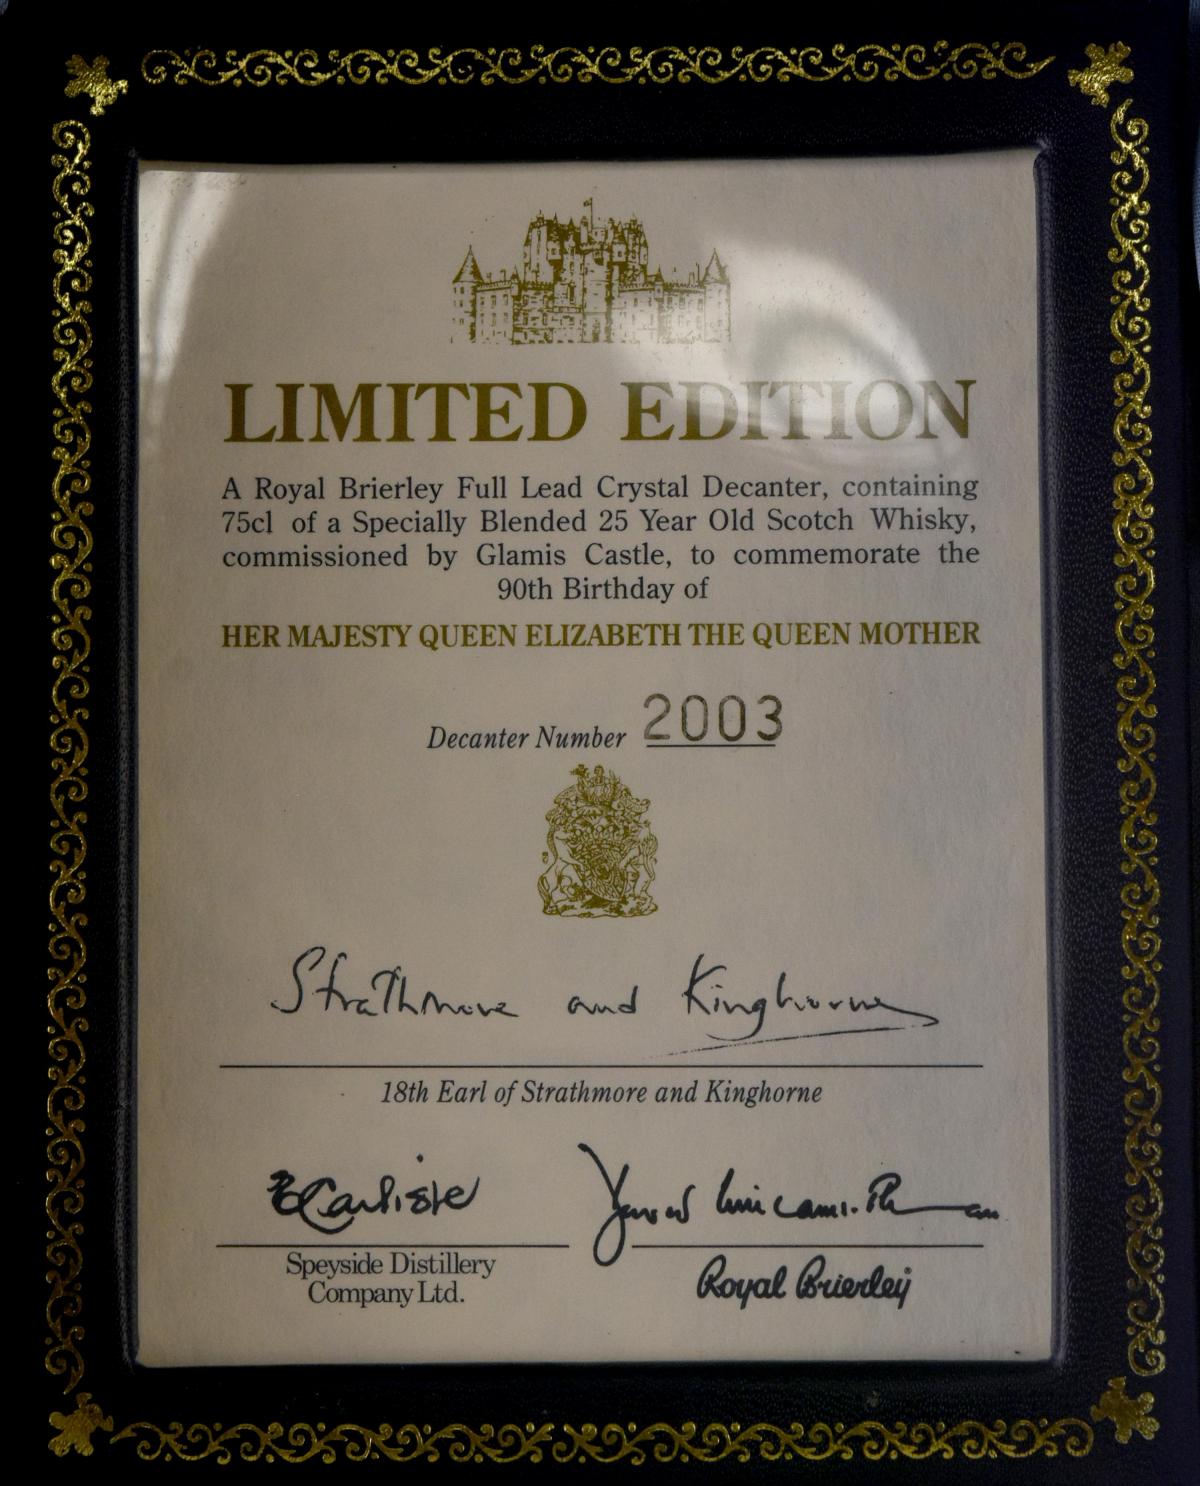 LIMITED EDITION
A Royal Brierley Full Lead Crystal Decanter, containing
75cl of a Specially Blended 25 Year Old Scotch Whisky,
commissioned by Glamis Castle, to commemorate the
90th Birthday of
HER MAJESTY QUEEN ELIZABETH THE QUEEN MOTHER
Decanter Number 2003
Strathmore and Kinghorne
18th Earl of Strathmore and Kinghorne
Carlisle
Speyside Distillery
Company Ltd.
Royal Brierley